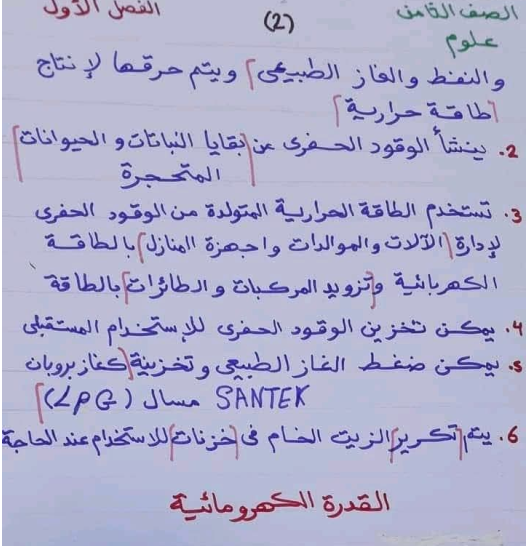 الصف الثامن (2) الفصل الأول
علوم
والنفط والغاز الطبيعي] ويتم حرقها لإنتاج
[طاقة حرارية]
2. ينشأ الوقود الحفري من [بقايا النباتات و الحيوانات
المتحجرة]
3. تستخدم الطاقة الحرارية المتولدة من الوقود الحفري
لإدارة [الآلات والمولدات و اجهزة المنازل] بالطاقة
الكهربائية و[تزويد المركبات و الطائرات] بالطاقة
4. يمكن تخزين الوقود الحفري للإستخدام المستقبلي
5. يمكن ضغط الغاز الطبيعي و تخزينة [كغاز بروبان
SANTEK مسال (LPG)]
6. يتم [تكرير] الزيت الخام في [خزنات] للاستخدام عند الحاجة
القدرة الكهرومائية